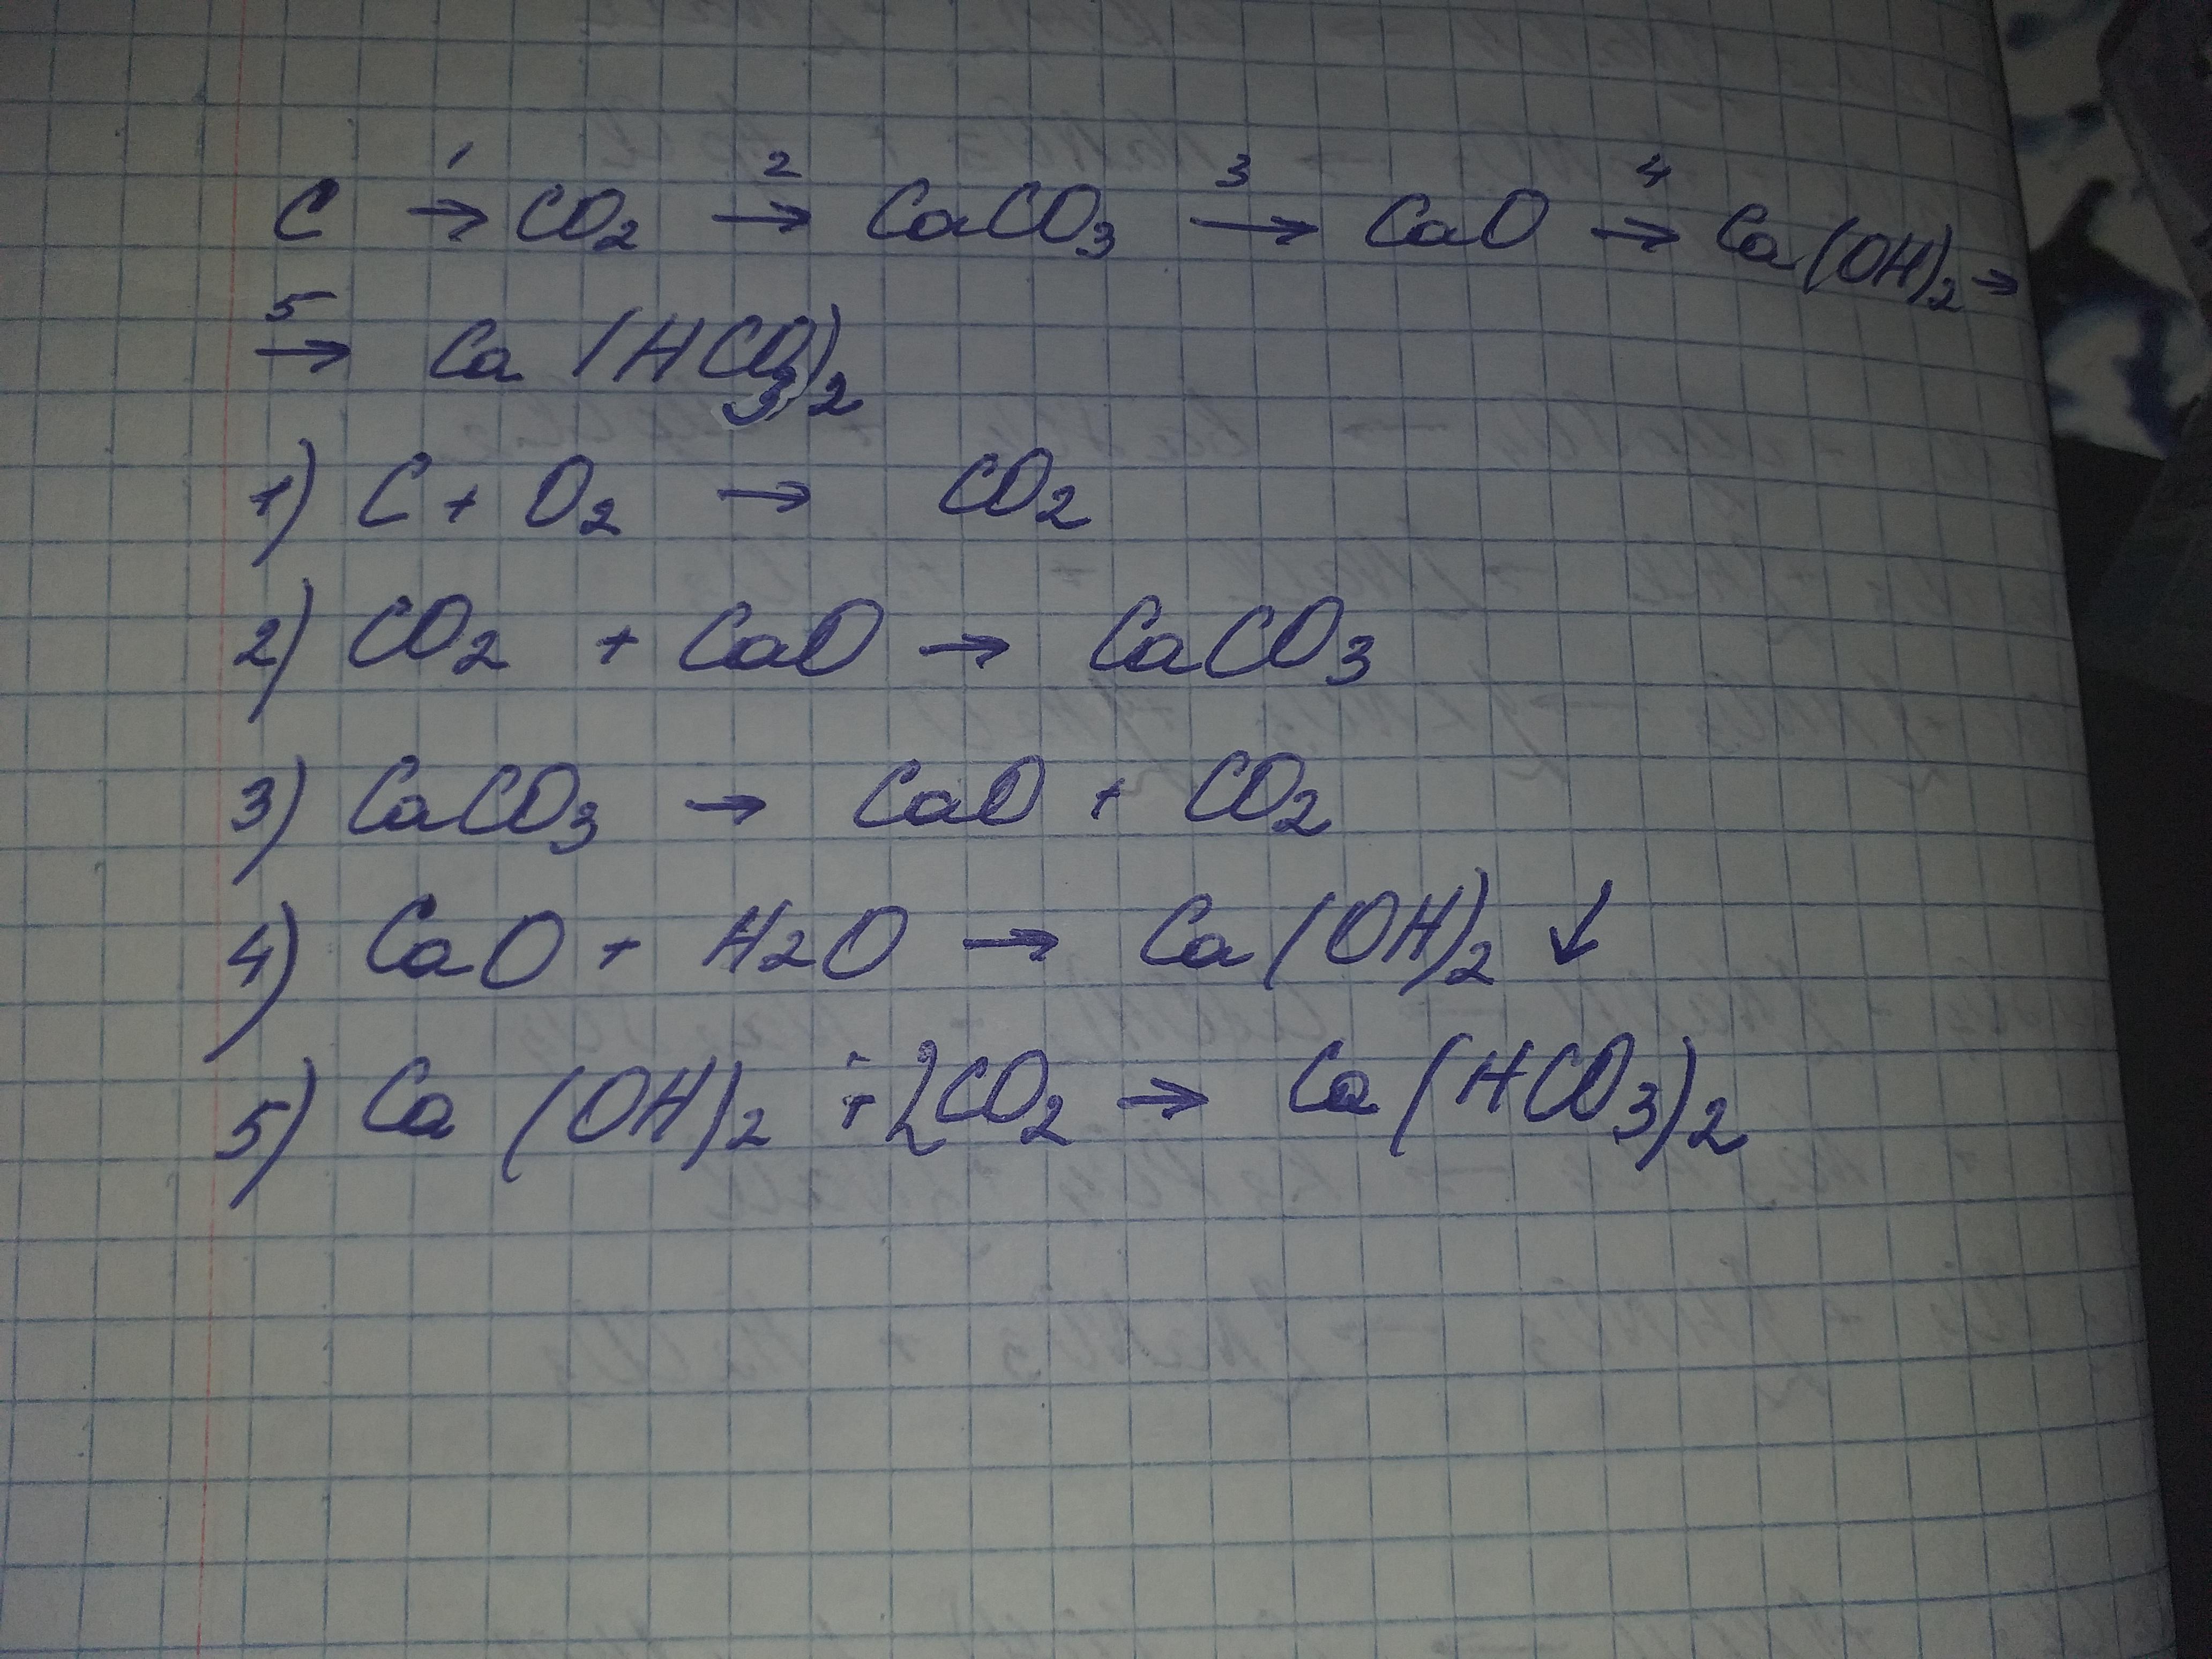 C →¹ CO₂ →² CaCO₃ →³ CaO →⁴ Ca(OH)₂ →
→⁵ Ca(HCO₃)₂
1) C + O₂ → CO₂
2) CO₂ + CaO → CaCO₃
3) CaCO₃ → CaO + CO₂
4) CaO + H₂O → Ca(OH)₂ ↓
5) Ca(OH)₂ + 2CO₂ → Ca(HCO₃)₂